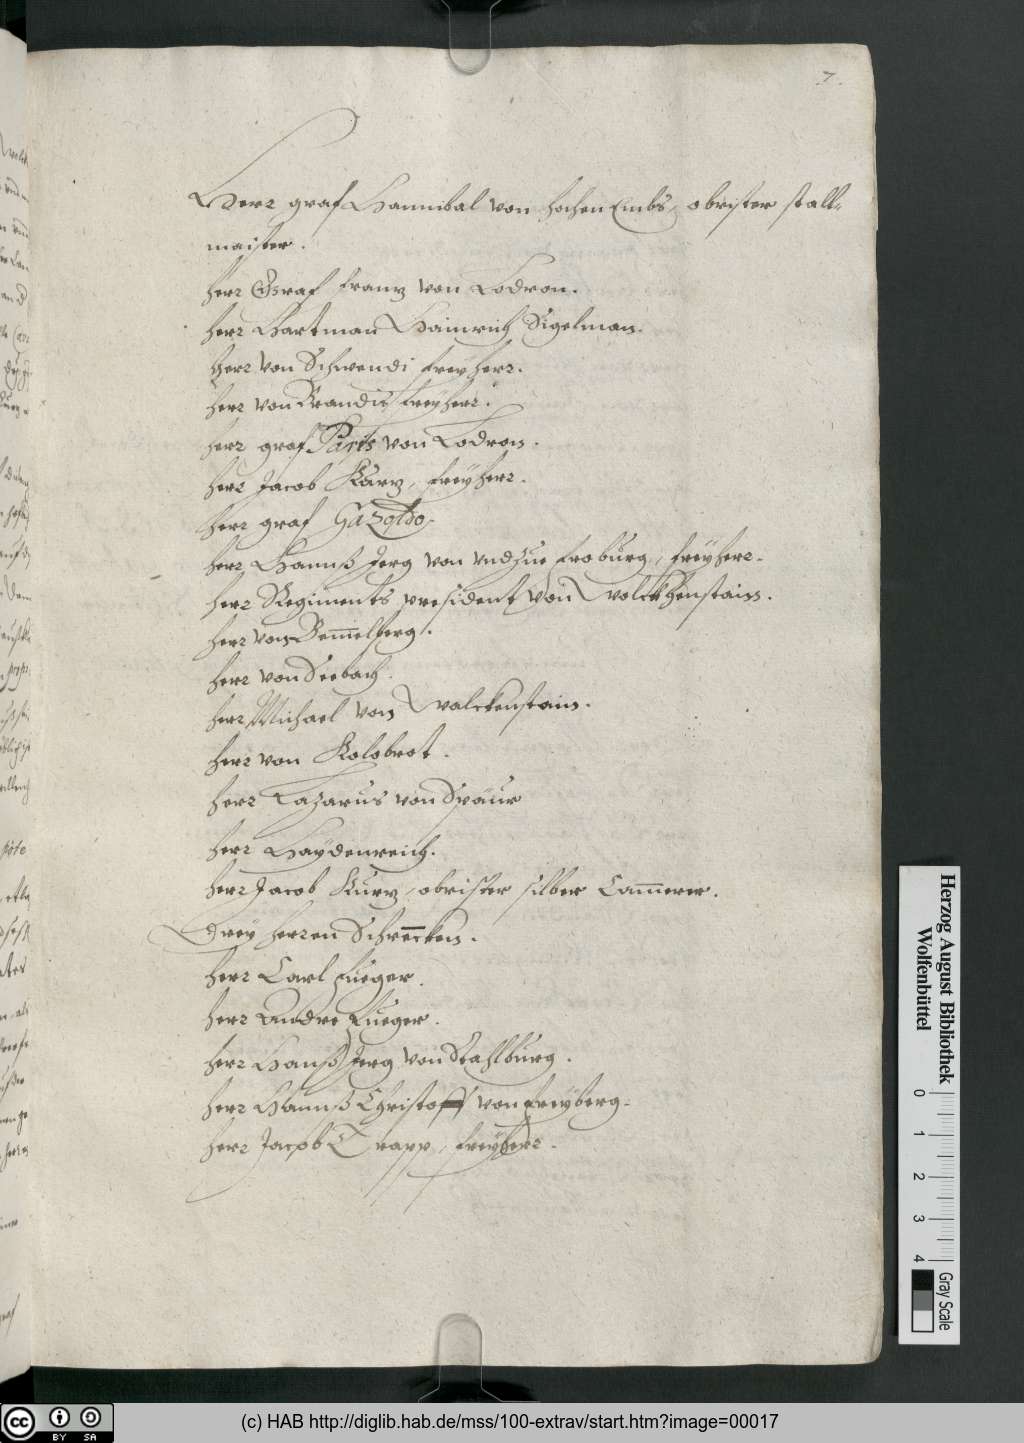 7.
Herr graf Hannibal von HochenEmbs, obrister stall-
maister.
herr Graf Franz von Lodron.
herr Hartman Hainrich Sigelman.
Herr von Schwendi freyherr.
herr von Brandis freyherr.
herr graf Paris von Lodron.
herr Jacob Kurz, freyherr.
herr graf Gazoldo.
herr Hannß Jerg von vnd zue Froburg, freyherr.
herr Regiments president von Wolckhenstain.
herr von Bemelberg.
herr von Seebach.
herr Michael von Walckenstain.
herr von Kolobrot.
herr Lazarus von Spaur
herr Haydenreich.
herr Jacob Kurz, obrister silber Camerer.
Drey herren Schrecken.
herr Carl Fueger.
herr Andre Fueger.
herr Hanß Jerg von Stahlburg.
herr Hannß Christoff von Freyberg.
herr Jacob Trapp, freyherr.
Herzog August Bibliothek
Wolfenbüttel
0 1 2 3 4
Gray Scale
cc BY SA
(c) HAB http://diglib.hab.de/mss/100-extrav/start.htm?image=00017